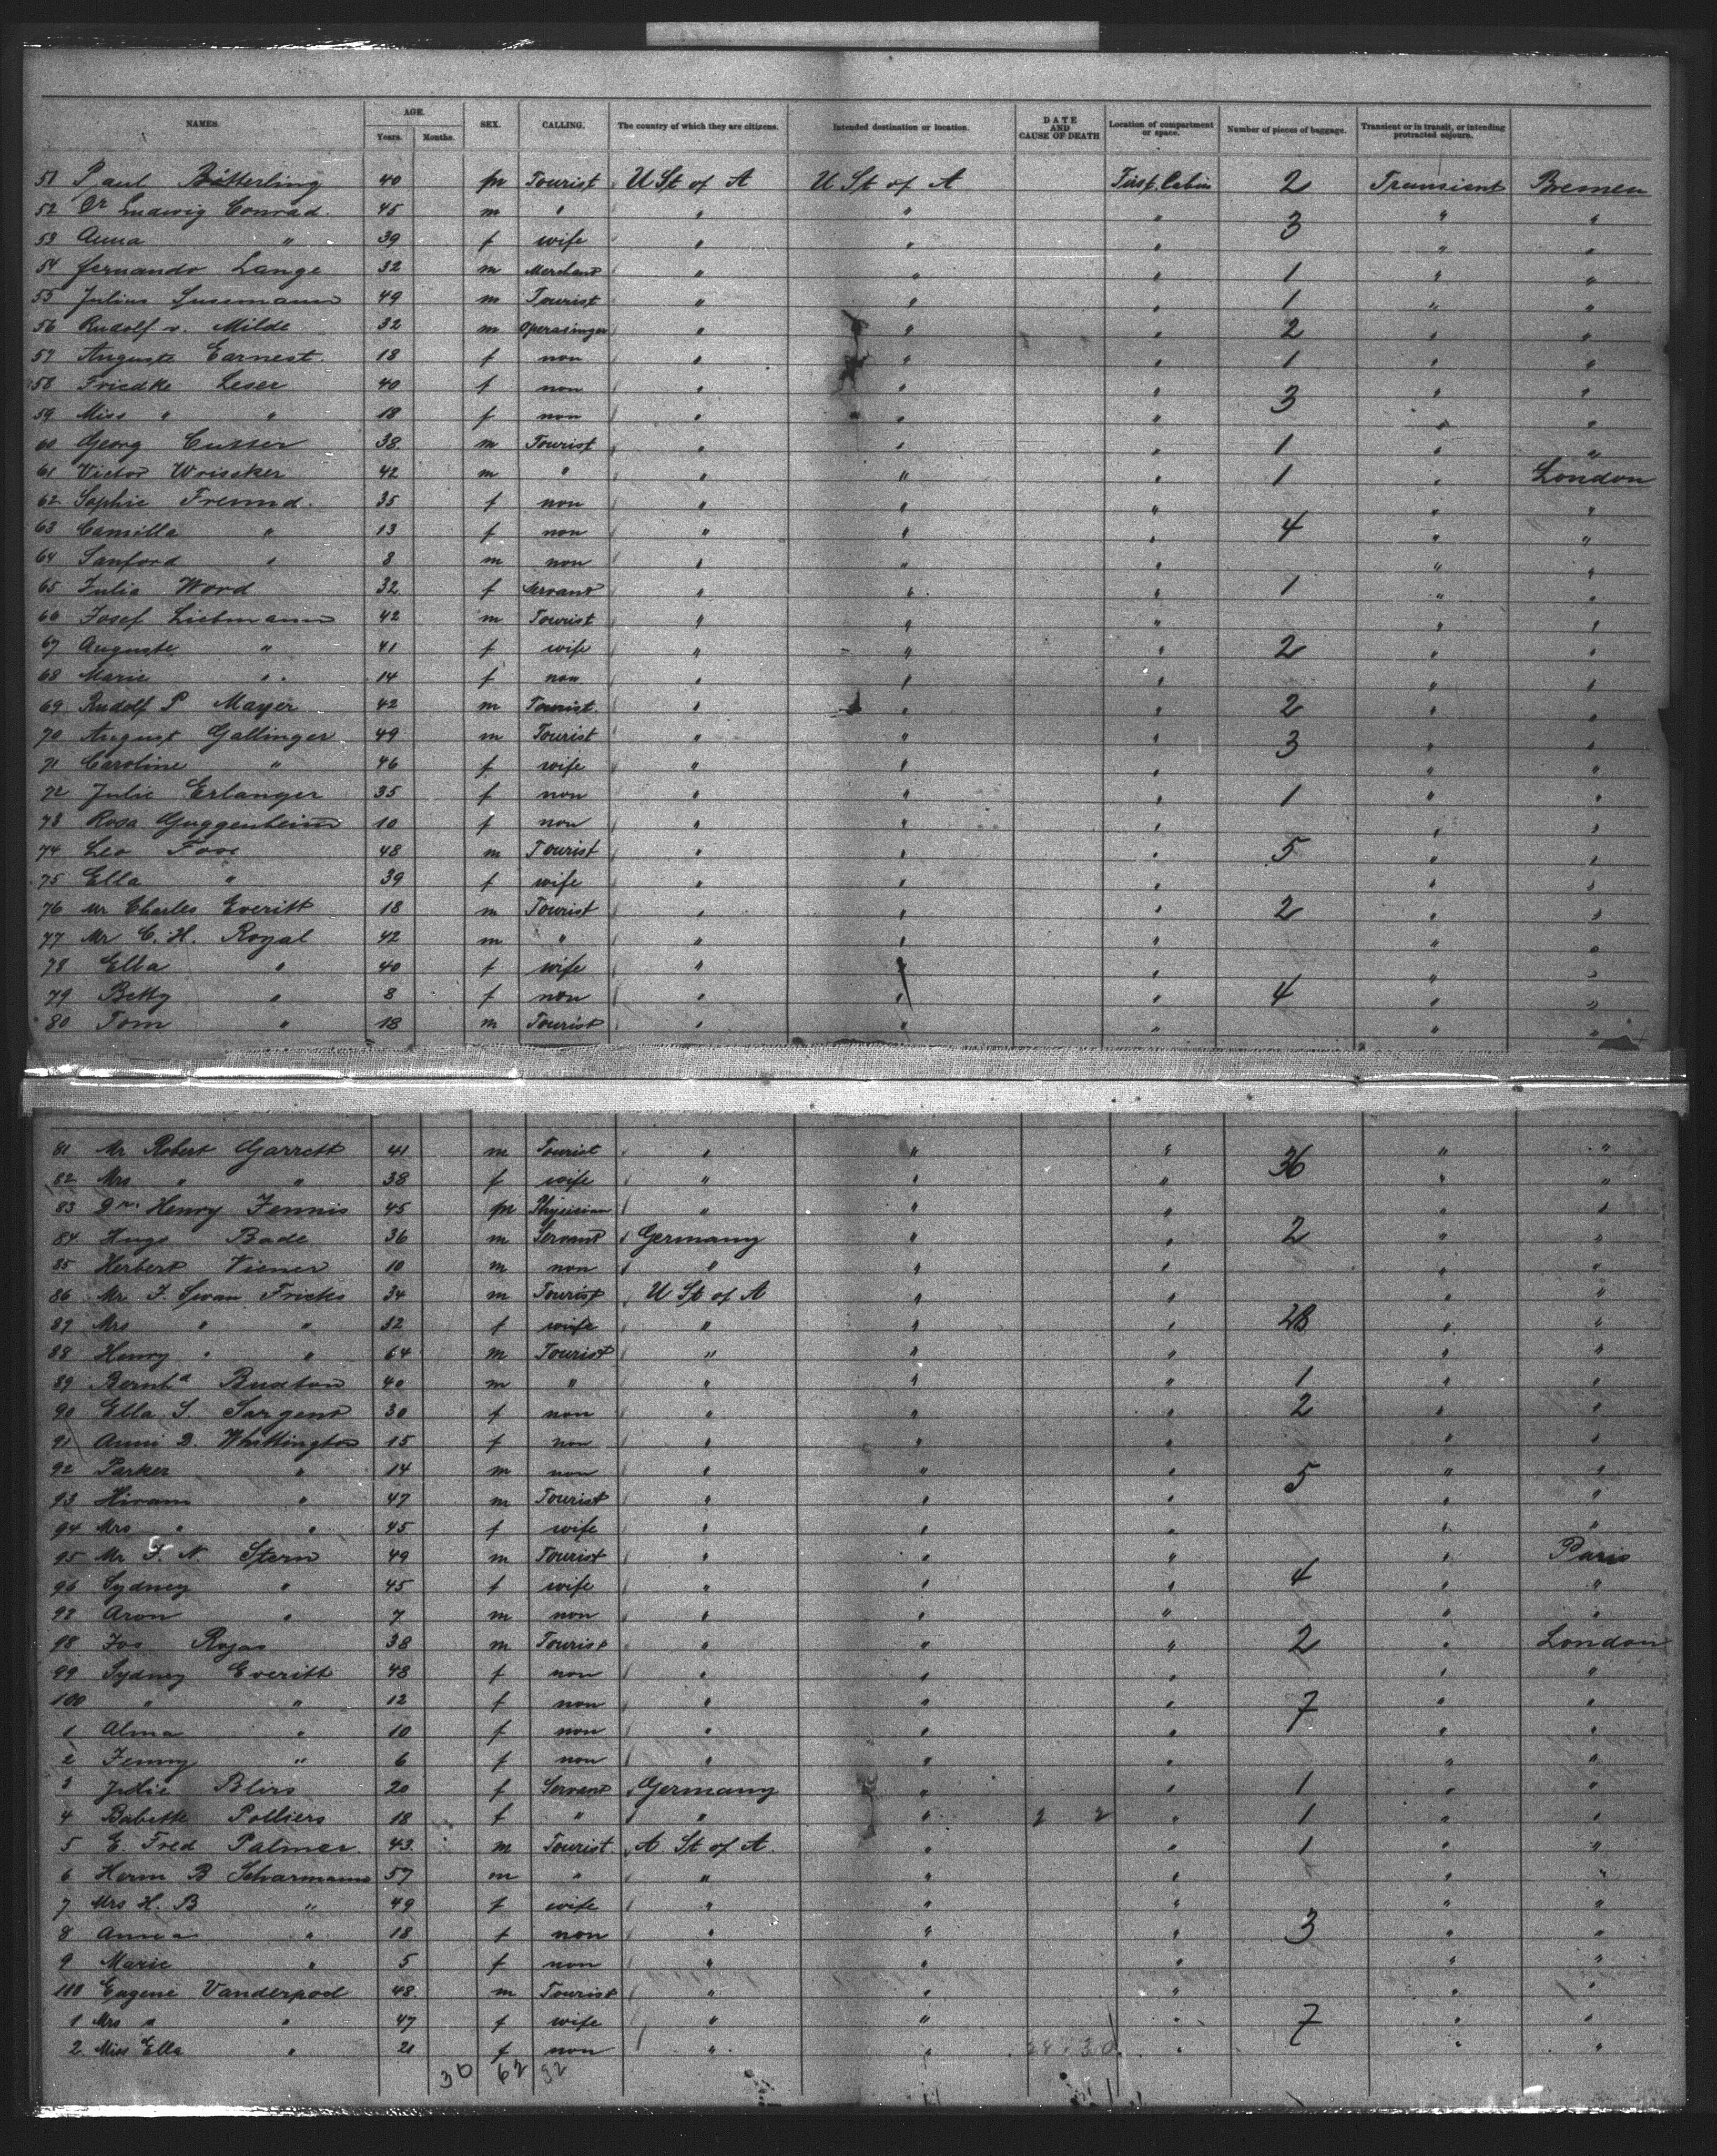 NAMES. AGE. SEX. CALLING. The country of which they are citizens. Intended destination or location. DATE AND CAUSE OF DEATH Location of compartment or space. Number of pieces of baggage. Transient or in transit, or intending protracted sojourn.
Years. Months.
51 Paul Bitterling 40 m Tourist U St of A U St of A First Cabin 2 Transient Bremen
52 Dr Ludwig Conrad 45 m " " " " " "
53 Anna " 39 f wife " " " 3 " "
54 Fernando Lange 32 m Merchant " " " 1 " "
55 Julius Sussmann 49 m Tourist " " " 1 " "
56 Rudolf v. Milde 32 m Operasinger " " " 2 " "
57 Auguste Earnest 18 f non " " " 1 " "
58 Friedke Leser 40 f non " " " 3 " "
59 Miss " " 18 f non " " " " "
60 Georg Cutter 38 m Tourist " " " 1 " "
61 Victor 42 m " " " " 1 " London
62 Sophie Freund 35 f non " " " " "
63 Camilla " 13 f non " " " 4 " "
64 Sanford " 8 m non " " " " "
65 Julia Word 32 f servant " " " 1 " "
66 Josef Liebmann 42 m Tourist " " " " "
67 Auguste " 41 f wife " " " 2 " "
68 Marie " 14 f non " " " " "
69 Rudolf P Mayer 42 m Tourist " " " 2 " "
70 August Gallinger 49 m Tourist " " " 3 " "
71 Caroline " 46 f wife " " " " "
72 Julie Erlanger 35 f non " " " 1 " "
73 Rosa Guggenheim 10 f non " " " " "
74 Leo 48 m Tourist " " " 5 " "
75 Ella " 39 f wife " " " " "
76 Mr Charles Everitt 18 m Tourist " " " 2 " "
77 Mr C. H. Royal 42 m " " " " " "
78 Ella " 40 f wife " " " " "
79 Betty " 8 f non " " " 4 " "
80 Tom " 18 m Tourist " " " " "
81 Mr Robert Garrett 41 m Tourist " " " 36 " "
82 Mrs " " 38 f wife " " " " "
83 Dr. Henry Fennis 45 m Physician " " " " "
84 Hugo Bade 36 m Servant Germany " " 2 " "
85 Herbert Viener 10 m non " " " " "
86 Mr F. Swan Fricks 34 m Tourist U St of A " " " "
87 Mrs " " 32 f wife " " " 28 " "
88 Henry " " 64 m Tourist " " " " "
89 Bernhd Buxton 40 m " " " " 1 " "
90 Ella S. Sargent 30 f non " " " 2 " "
91 Anni D. Whittington 15 f non " " " " "
92 Parker " 14 m non " " " 5 " "
93 Hiram " 47 m Tourist " " " " "
94 Mrs " " 45 f wife " " " " "
95 Mr S. N. Stern 49 m Tourist " " " " Paris
96 Sydney " 45 f wife " " " 4 " "
97 Aron " 7 m non " " " " "
98 Jos Rojas 38 m Tourist " " " 2 " London
99 Sydney Everitt 48 f non " " " " "
100 " " 12 f non " " " 7 " "
1 Alma " 10 f non " " " " "
2 Jenny " 6 f non " " " " "
3 Julie Blirs 20 f Servant Germany " " 1 " "
4 Babette Polliers 18 f " " " 2 2 " 1 " "
5 E. Fred Palmer 43 m Tourist A St of A " " 1 " "
6 Herm B Scharmann 57 m " " " " " "
7 Mrs H. B " 49 f wife " " " " "
8 Anna " 18 f non " " " 3 " "
9 Marie " 5 f non " " " " "
110 Eugene Vanderpool 48 m Tourist " " " " "
1 Mrs " " 47 f wife " " " 7 " "
2 Miss Ella " 21 f non " " " " "
30 62 32